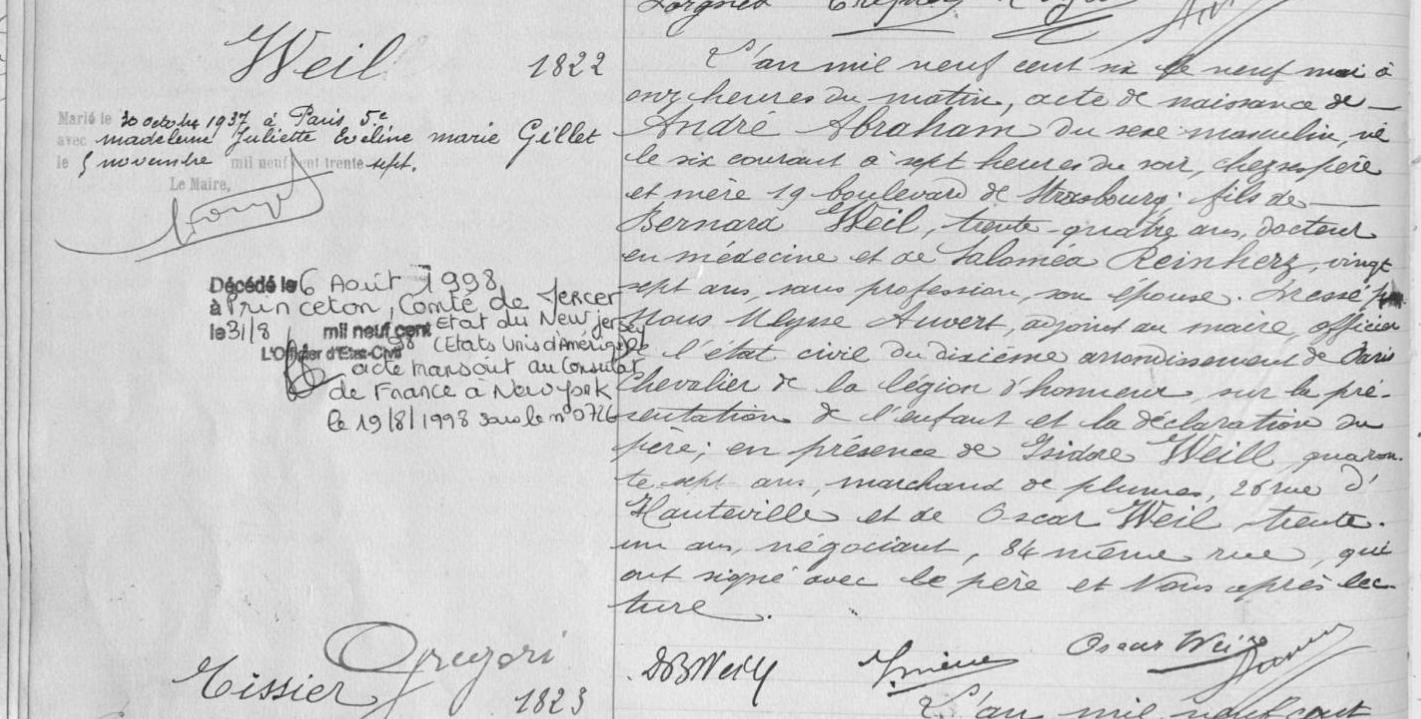 Weil 1822
Marié le 30 octobre 1937 à Paris 5e
avec madeleine Juliette Eveline marie Gillet
le 5 novembre mil neuf cent trente sept.
Le Maire,
Décédé le 6 Août 1998
à Princeton, Comté de Mercer
le 31/8 mil neuf cent 98 Etat du New jersey
(Etats Unis d'Amérique)
L'Officier d'Etat-Civil
acte transcrit au Consulat
de France à New York
le 19/8/1998 sous le n° 0726
L'an mil neuf cent six le neuf mai à
onze heures du matin, acte de naissance de
André Abraham du sexe masculin, né
le six courant à sept heures du soir, chez ses père
et mère 19 boulevard de Strasbourg; fils de
Bernard Weil, trente-quatre ans, docteur
en médecine et de Saloméa Reinherz, vingt
sept ans, sans profession, son épouse. Dressé par
Nous Ulysse Auvert, adjoint au maire, officier
de l'état civil du dixième arrondissement de Paris
Chevalier de la légion d'honneur, sur la pré-
sentation de l'enfant et la déclaration du
père; en présence de Isidore Weill, quaran-
te sept ans, marchand de plumes, 26 rue d'
Hauteville et de Oscar Weil, trente-
un ans, négociant, 84 même rue, qui
ont signé avec le père et Nous après lec-
ture.
DB Weil Oscar Weil
Gregori
Tissier 1823
L'an mil neuf cent